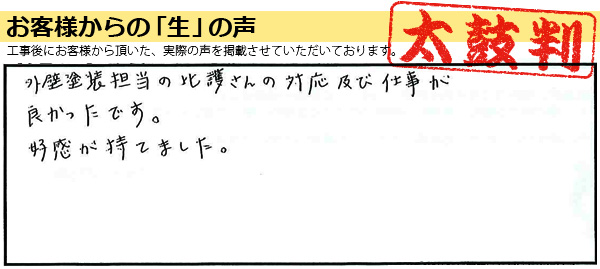 お客様からの「生」の声
太鼓判
工事後にお客様から頂いた、実際の声を掲載させていただいております。
外壁塗装担当の比護さんの対応及び仕事が
良かったです。
好感が持てました。